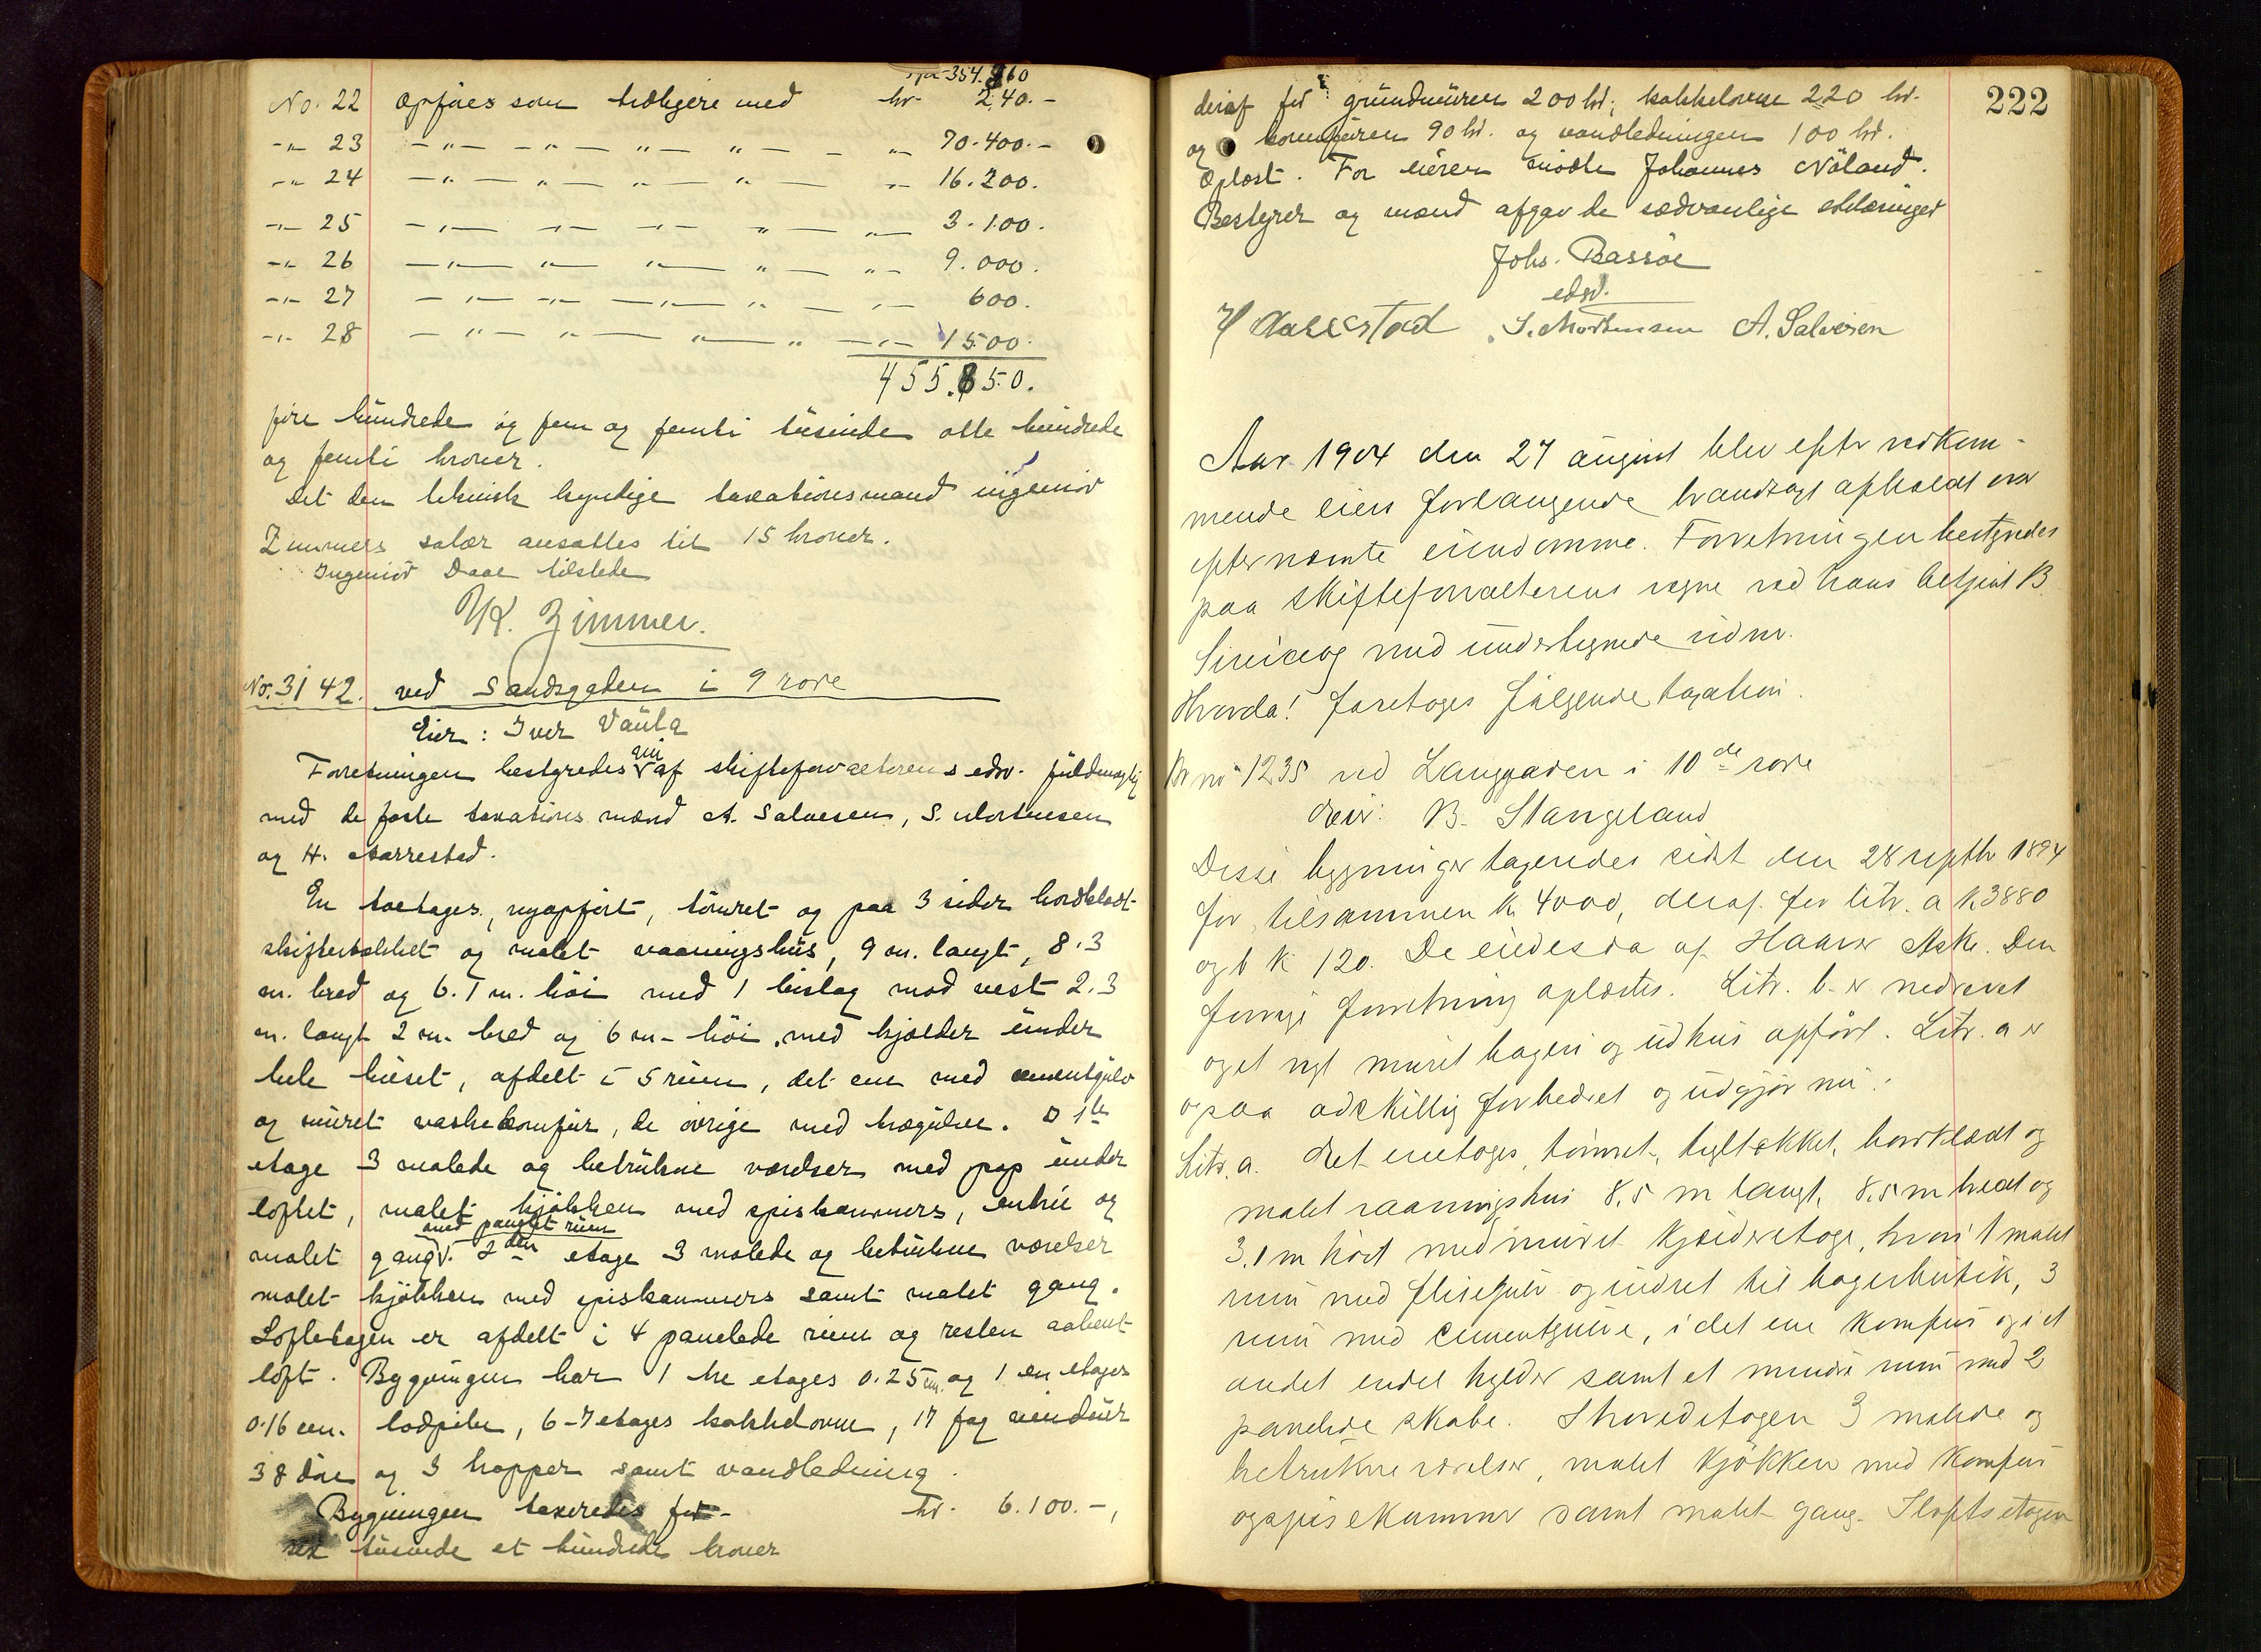 354.560
No. 22 opføres som tidligere med kr. 240.-
-"- 23 -"- -"- -"- -"- -"- 70.400.-
-"- 24 -"- -"- -"- -"- -"- 16.200.
-"- 25 -"- -"- -"- -"- -"- 3.100.
-"- 26 -"- -"- -"- -"- -"- 9.000.
-"- 27 -"- -"- -"- -"- -"- 600.
-"- 28 -"- -"- -"- -"- -"- 1500.
455.850.
fire hundrede og fem og femti tusinde otte hundrede
og femti kroner.
Det den teknisk kyndige taxationsmand ingeniør
Zimmers salær ansattes til 15 kroner.
Ingeniør Daae tilstede
K. Zimmer.
No. 3142. ved Sandsgaden i 9 rode
Eier: Iver Vaula
Forretningen bestyredes nu af skifteforvalterens edsv. fuldmægtig
med de faste taxationsmænd A. Salvesen, S. Mortensen
og H. Aarrestad.
En toetages, nyopført, tømret og paa 3 sider bordklædt
skiftertækket og malet vaaningshus, 9 m. langt, 8.3
m. bred og 6.7 m. høi med 1 bislag mod vest 2.3
m. langt 2 m. bred og 6 m. høi, med kjælder under
hele huset, afdelt i 5 rum, det ene med cementgulv
og muret vaskekomfur, de øvrige med trægulve. I 1ste
etage 3 malede og betrukne værelser med pap under
loftet, malet kjøkken med spiskammers, entrée og
malet gang med panelet rum. 2den etage 3 malede og betrukne værelser
malet kjøkken med spiskammers samt malet gang.
Loftetagen er afdelt i 4 panelede rum og resten aabent
loft. Bygningen har 1 tre etages 0.25 cm. og 1 en etages
0.16 cm. lodpibe, 6-7 etages kakkelovne, 17 fag vinduer
38 døre og 3 trapper samt vandledning.
Bygningen taxeredes for kr. 6.100.-,
sex tusinde et hundrede kroner
222
deraf for grundmuren 200 kr., kakkelovne 220 kr.
og komfuren 90 kr. og vandledningen 100 kr.
Oplæst. For eieren mødte Johannes Nöland.
Bestyrer og mænd afgav de sædvanlige erklæringer
Johs. Bassøe
edsv.
H Aarrestad S. Mortensen A. Salvesen
Aar 1904 den 27 august blev efter vedkom-
mende eiers forlangende brandtaxt afholdt over
efternævnte eiendomme. Forretningen bestyredes
paa skifteforvalterens vegne ved hans betjent B.
og med undertegnede vidner.
Hvorda! foretoges følgende taxation.
Br no 1235 ved Langgaden i 10de rode
Eier: B. Stangeland
Disse bygninger taxeredes sidst den 28 septbr 1894
for tilsammen k. 4000, deraf for litr. a k. 3880
og b k 120. De eiedes da af Haaver Aske. Den
forrige forretning oplæstes. Litr. b er nedrevet
og et nyt muret bageri og udhus opført. Litr. a er
ogsaa adskillig forbedret og udgjør nu:
Litr. a. Et enetages, tømret, tegltækket, bordklædt og
malet vaaningshus 8,5 m langt, 8,5 m bredt og
3,1 m høit med muret kjælderetage, hvori 1 malet
rum med flisegulv og indret til bagerbutik, 3
rum med cementgulve, i det ene komfur og i et
andet endel hylder samt et mindre rum med 2
panelede skabe. I hovedetagen 3 malede og
betrukne værelser, malet kjøkken med komfur
og spisekammer samt malet gang. I loftsetagen